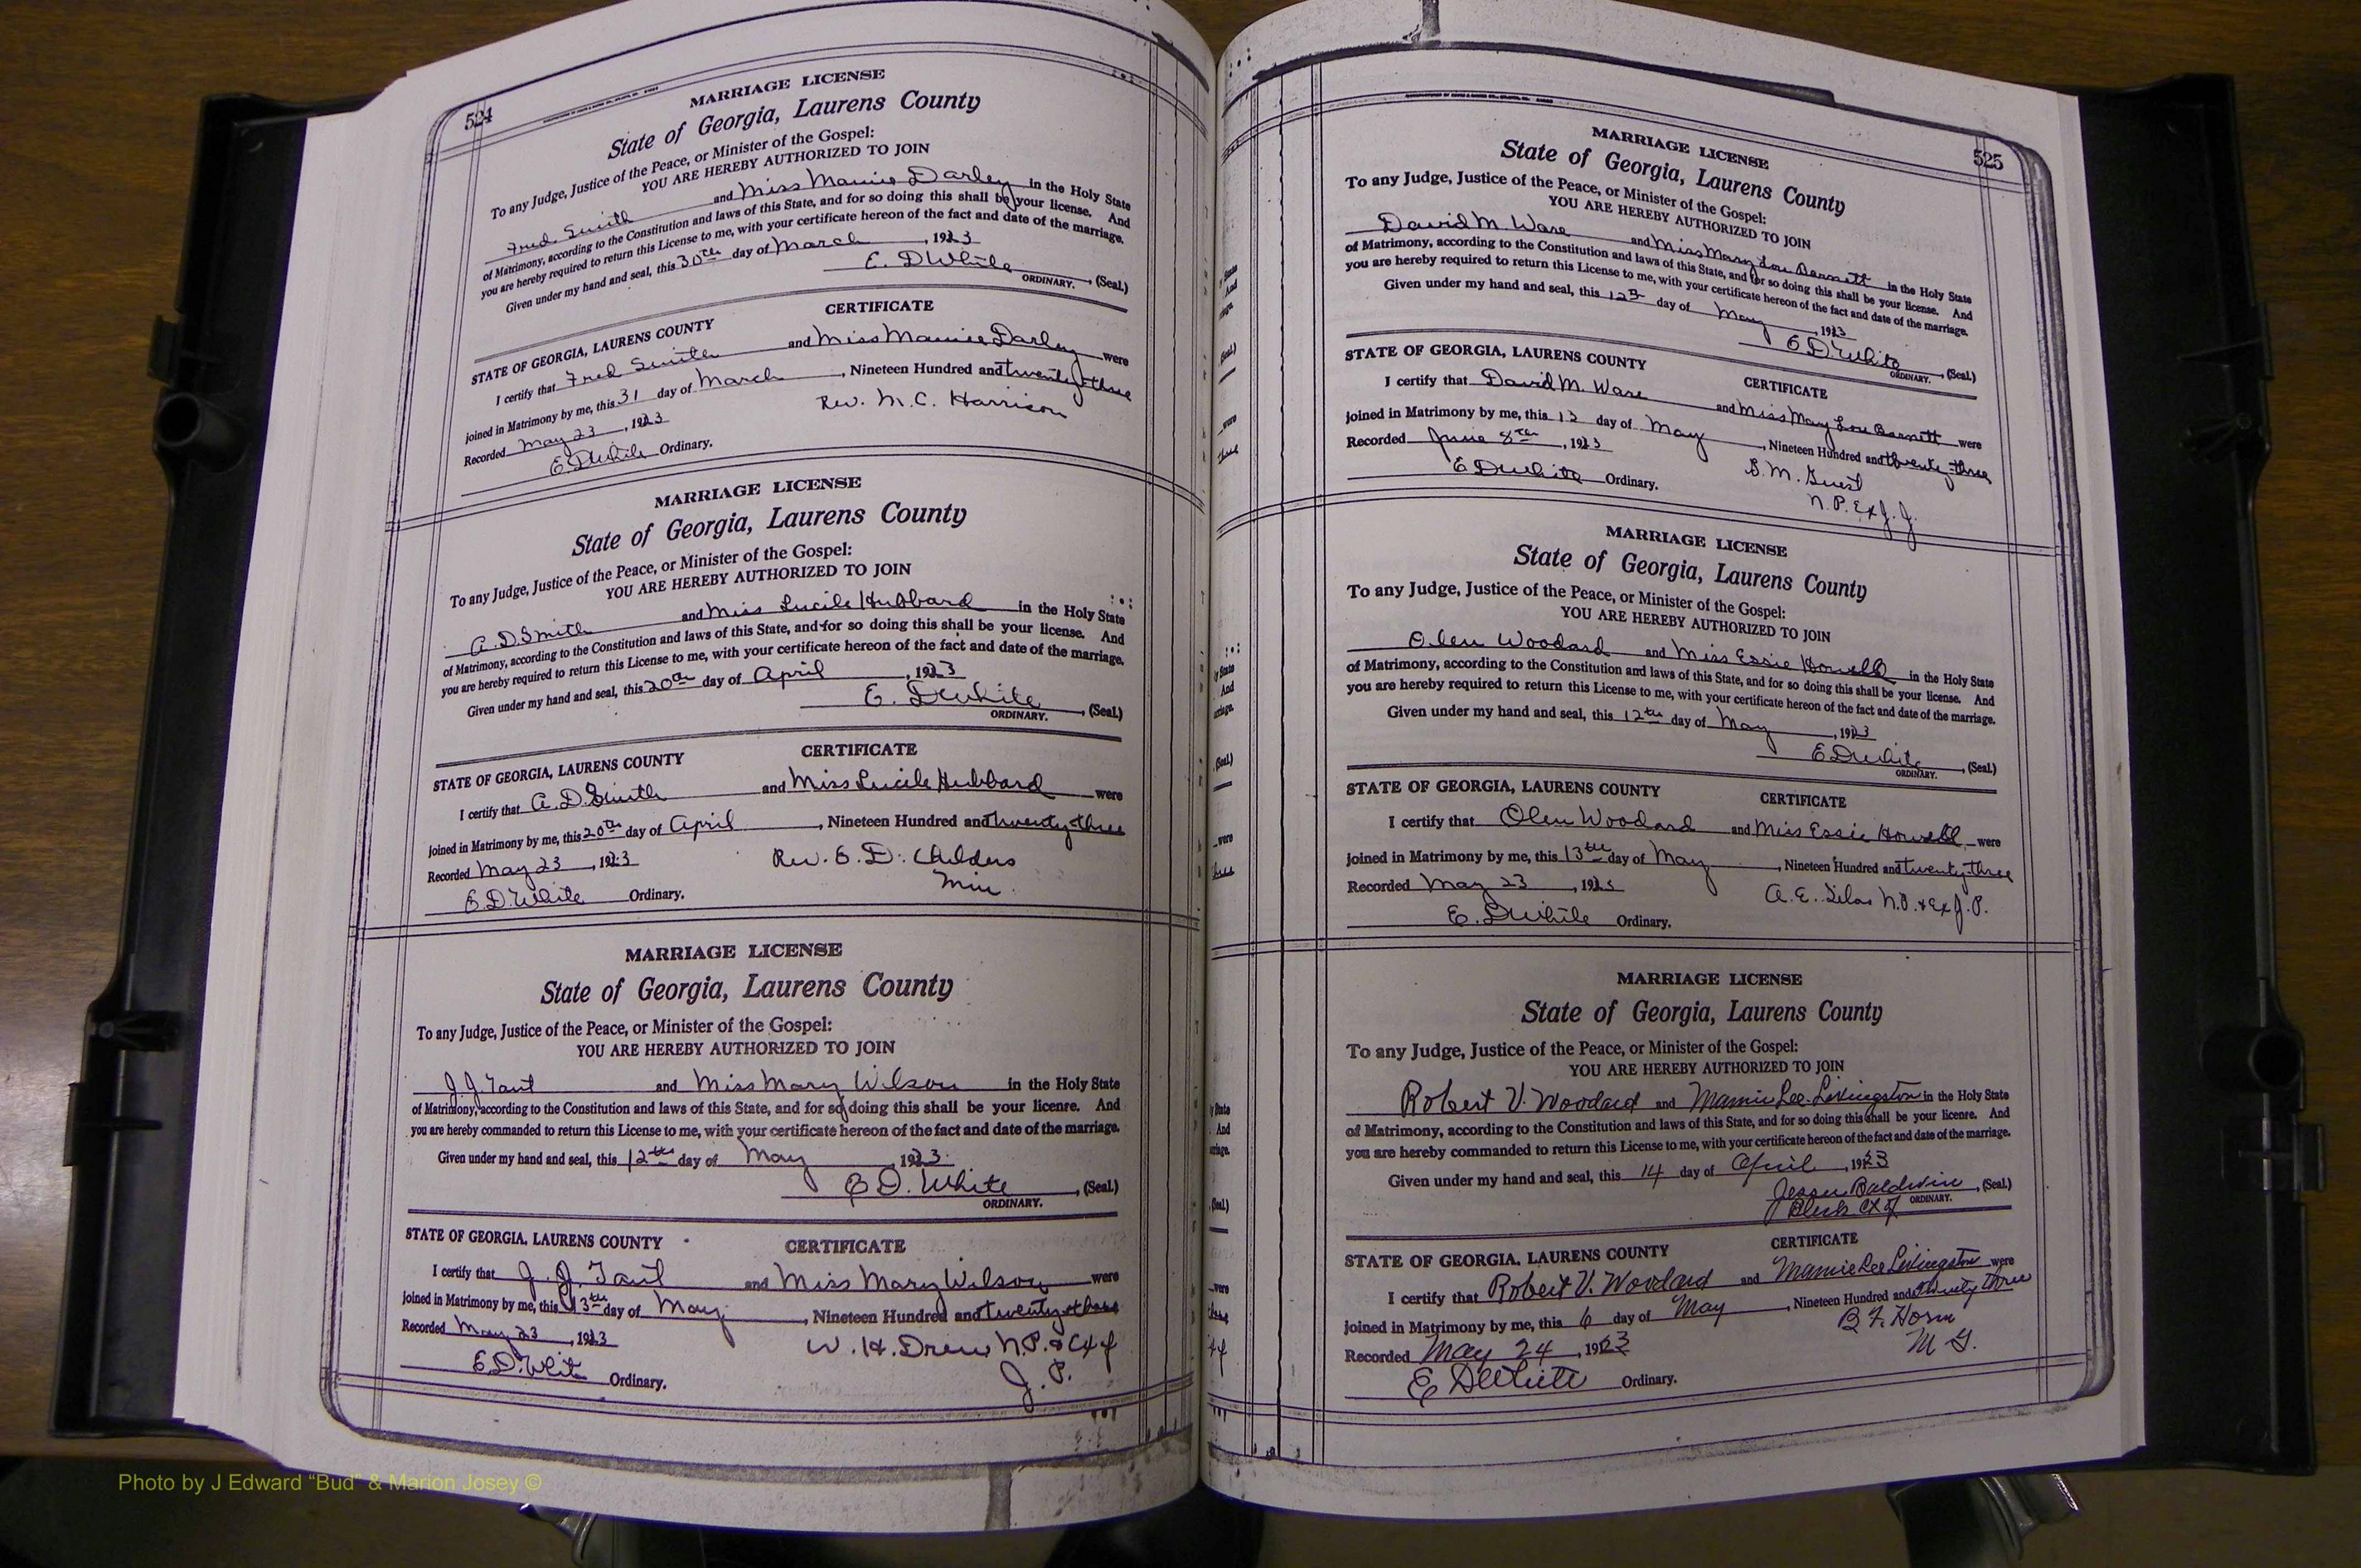 524
MARRIAGE LICENSE
State of Georgia, Laurens County
To any Judge, Justice of the Peace, or Minister of the Gospel:
YOU ARE HEREBY AUTHORIZED TO JOIN
Fred Smith and Miss Mamie Darley in the Holy State
of Matrimony, according to the Constitution and laws of this State, and for so doing this shall be your license. And
you are hereby required to return this License to me, with your certificate hereon of the fact and date of the marriage.
Given under my hand and seal, this 30th day of March, 1923
E. D White (Seal.)
ORDINARY.
CERTIFICATE
STATE OF GEORGIA, LAURENS COUNTY
I certify that Fred Smith and Miss Mamie Darley were
joined in Matrimony by me, this 31 day of March, Nineteen Hundred and twenty-three
Recorded May 23, 1923 Rev. M. C. Harrison
E. D White Ordinary.
MARRIAGE LICENSE
State of Georgia, Laurens County
To any Judge, Justice of the Peace, or Minister of the Gospel:
YOU ARE HEREBY AUTHORIZED TO JOIN
A. D. Smith and Miss Lucile Hubbard in the Holy State
of Matrimony, according to the Constitution and laws of this State, and for so doing this shall be your license. And
you are hereby required to return this License to me, with your certificate hereon of the fact and date of the marriage.
Given under my hand and seal, this 20th day of April, 1923
E. D White (Seal.)
ORDINARY.
CERTIFICATE
STATE OF GEORGIA, LAURENS COUNTY
I certify that A. D. Smith and Miss Lucile Hubbard were
joined in Matrimony by me, this 20th day of April, Nineteen Hundred and twenty-three
Recorded May 23, 1923 Rev. E. D. Childers
E. D. White Ordinary. Min.
MARRIAGE LICENSE
State of Georgia, Laurens County
To any Judge, Justice of the Peace, or Minister of the Gospel:
YOU ARE HEREBY AUTHORIZED TO JOIN
J J Tant and Miss Mary Wilson in the Holy State
of Matrimony, according to the Constitution and laws of this State, and for so doing this shall be your licenre. And
you are hereby commanded to return this License to me, with your certificate hereon of the fact and date of the marriage.
Given under my hand and seal, this 12th day of May, 1923
E D. White, (Seal.)
ORDINARY.
STATE OF GEORGIA. LAURENS COUNTY CERTIFICATE
I certify that J. J. Tant and Miss Mary Wilson were
joined in Matrimony by me, this 13th day of May, Nineteen Hundred and twenty-three
Recorded May 23, 1923 W. H. Drew N.P. &
E. D. White Ordinary. J. P.
525
MARRIAGE LICENSE
State of Georgia, Laurens County
To any Judge, Justice of the Peace, or Minister of the Gospel:
YOU ARE HEREBY AUTHORIZED TO JOIN
David M. Ware and Miss Mary Lou Barnett in the Holy State
of Matrimony, according to the Constitution and laws of this State, and for so doing this shall be your license. And
you are hereby required to return this License to me, with your certificate hereon of the fact and date of the marriage.
Given under my hand and seal, this 12th day of May, 1923
E D White, (Seal.)
ORDINARY.
STATE OF GEORGIA, LAURENS COUNTY CERTIFICATE
I certify that David M. Ware and Miss Mary Lou Barnett were
joined in Matrimony by me, this 13 day of May, Nineteen Hundred and twenty-three
Recorded June 8th, 1923 S. M. Guest
E D White Ordinary. N. P. Ex J.
MARRIAGE LICENSE
State of Georgia, Laurens County
To any Judge, Justice of the Peace, or Minister of the Gospel:
YOU ARE HEREBY AUTHORIZED TO JOIN
Olen Woodard and Miss Essie Howell in the Holy State
of Matrimony, according to the Constitution and laws of this State, and for so doing this shall be your license. And
you are hereby required to return this License to me, with your certificate hereon of the fact and date of the marriage.
Given under my hand and seal, this 12th day of May, 1923
E D White, (Seal.)
ORDINARY.
STATE OF GEORGIA, LAURENS COUNTY CERTIFICATE
I certify that Olen Woodard and Miss Essie Howell were
joined in Matrimony by me, this 13th day of May, Nineteen Hundred and twenty-three
Recorded May 23, 192 A. E. N.P. & Ex J. P.
E. D White Ordinary.
MARRIAGE LICENSE
State of Georgia, Laurens County
To any Judge, Justice of the Peace, or Minister of the Gospel:
YOU ARE HEREBY AUTHORIZED TO JOIN
Robert V. Woodard and Mamie Lee Livingston in the Holy State
of Matrimony, according to the Constitution and laws of this State, and for so doing this shall be your licenre. And
you are hereby commanded to return this License to me, with your certificate hereon of the fact and date of the marriage.
Given under my hand and seal, this 14 day of April, 1923
Jessie Baldwin, (Seal.)
Clerk ORDINARY.
STATE OF GEORGIA. LAURENS COUNTY CERTIFICATE
I certify that Robert V. Woodard and Mamie Lee Livingston were
joined in Matrimony by me, this 6 day of May, Nineteen Hundred and twenty three
Recorded May 24, 1923 B. F. Horn
E D White Ordinary. M G.
Photo by J Edward “Bud” & Marion Josey ©